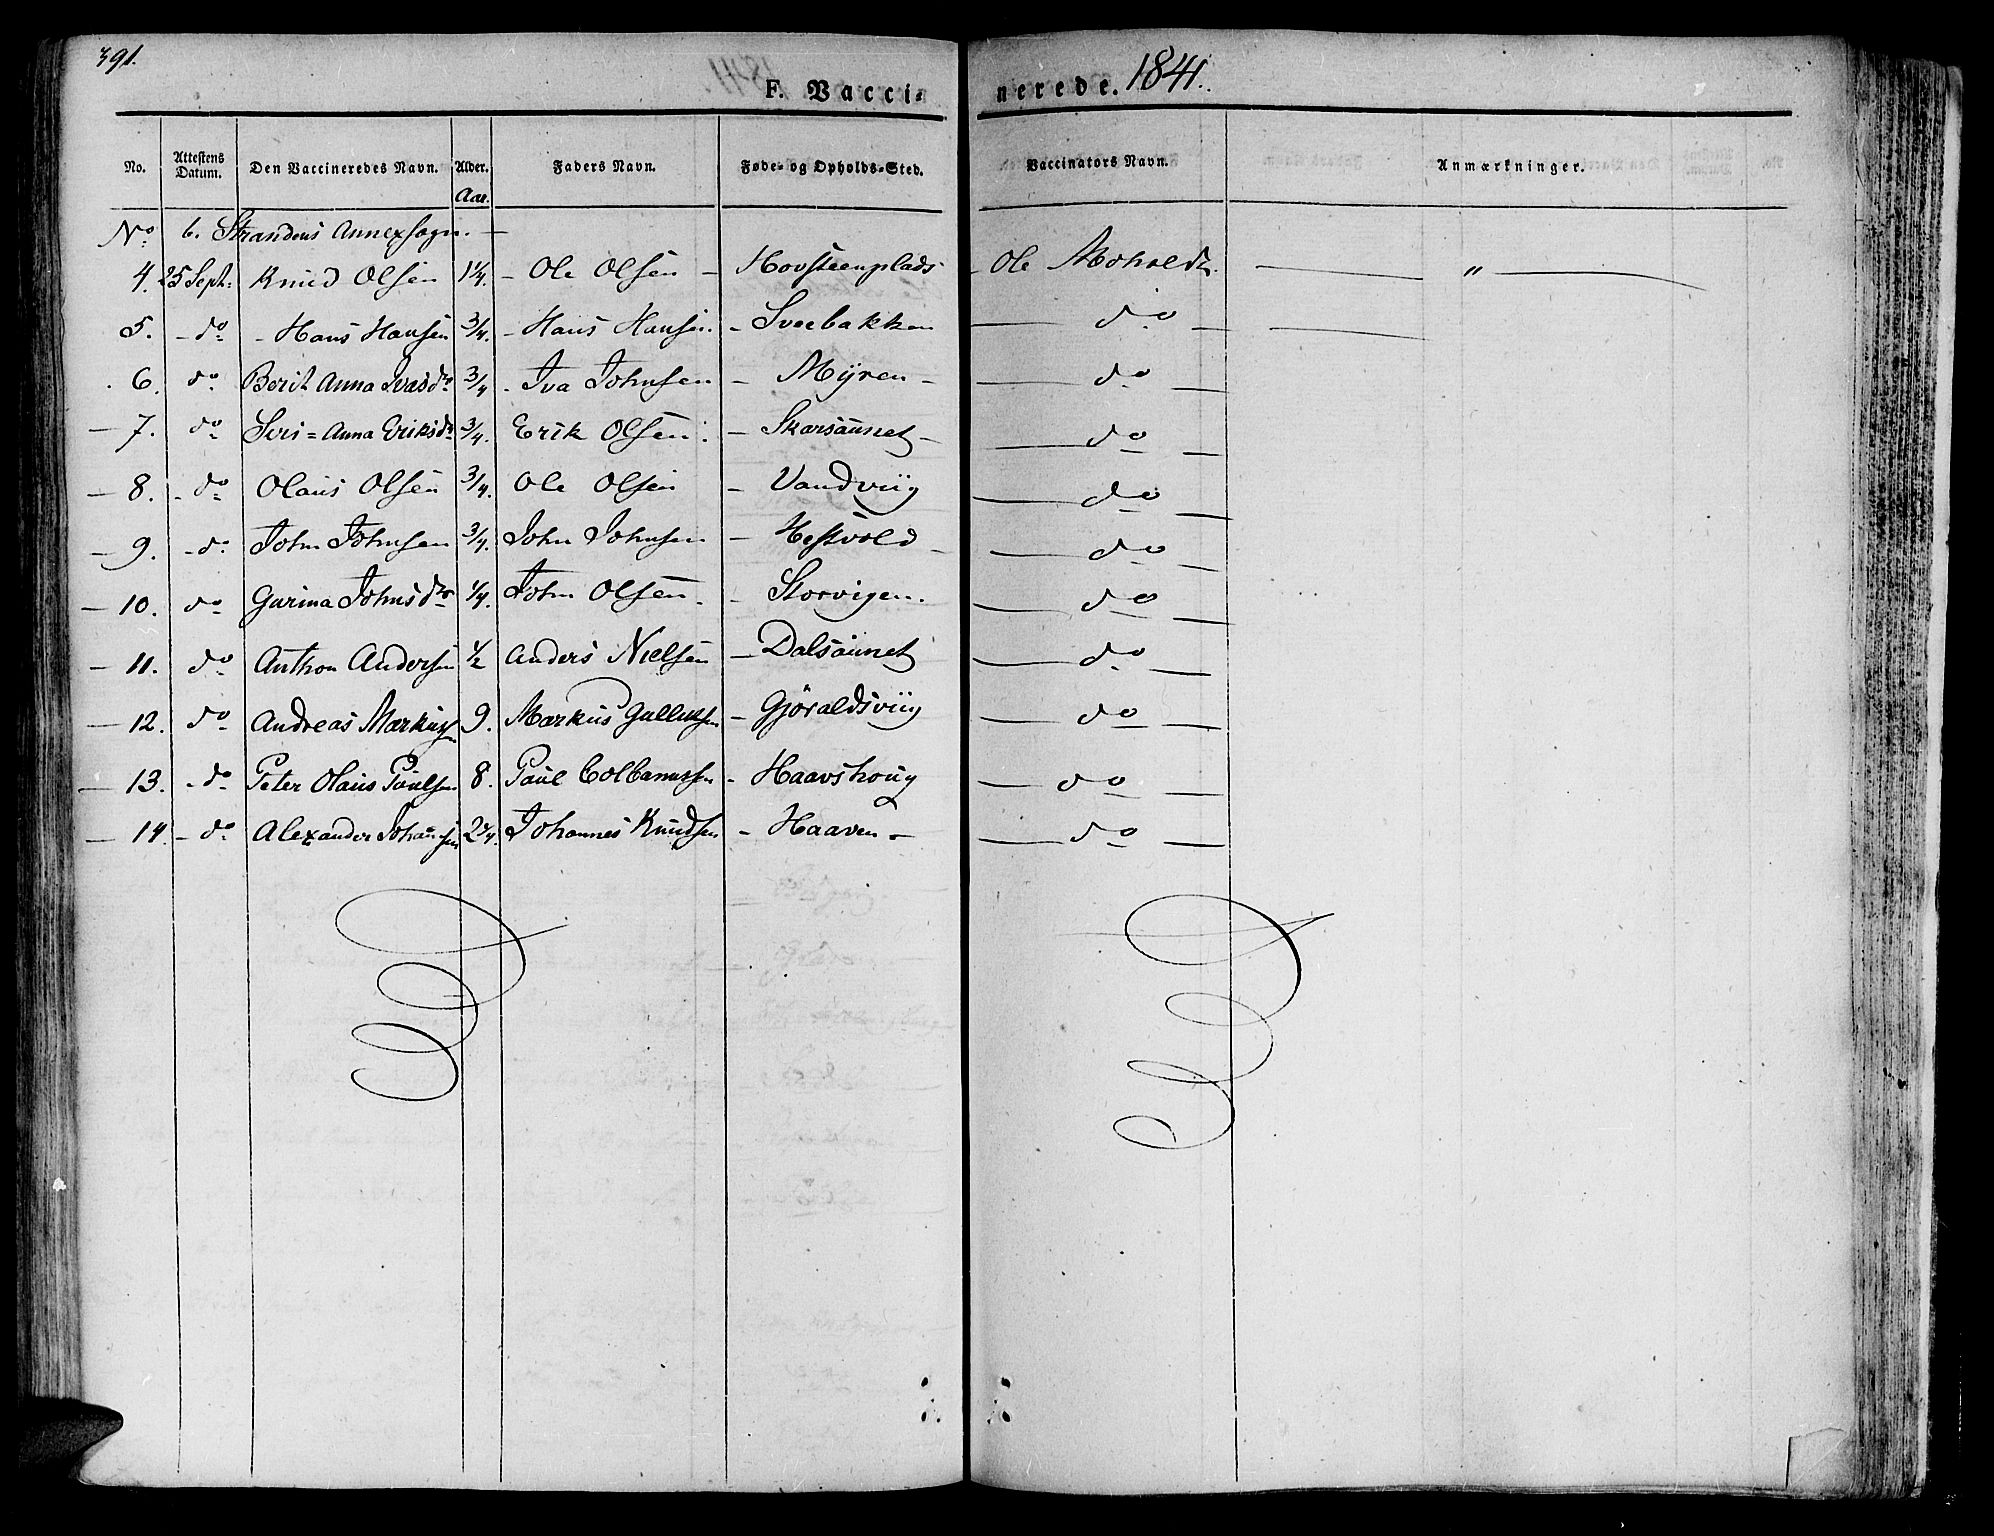 391.
F. Vacci-nerede. 1841.
No. Attestens Datum. Den Vaccineredes Navn. Alder. Faders Navn. Føde- og Opholds-Sted. Vaccinators Navn. Anmærkninger.
Aar.
No. b. Strandens Annexsogn. —
4. 25 Sept: Knud Olsen 1 1/4. - Ole Olsen - Hovsteenplads - Ole Moholdt. — " —
5. - do - Hans Hansen 3/4. - Hans Hansen. - Sveebakken — do —
6. do Berit Anna Ivasdr 3/4 - Iva Johnsen - Myren - — do —
7. do Seri = Anna Eriksdr 3/4. Erik Olsen. - Skarsaunet - — do —
8. - do Olaus Olsen 3/4. Ole Olsen - Vandviig — do —
9. - do John Johnsen 3/4. John Johnsen - Hestvold - — do —
10. do Gurina Johnsdr 1/4. John Olsen. - Storvigen. — do —
11. do Anthon Andersen 1/2 Anders Nielsen - Dalsaunet — do —
12. do Andreas Markussen 9. Markus Gullussen - Gjöraldsviig — do —
13. - do Peter Olaus Paulsen 8. Paul Colbanussen - Haavshoug — do —
14. - do Alexander Johansen 2 3/4. Johannes Knudsen - Haaven - — do —